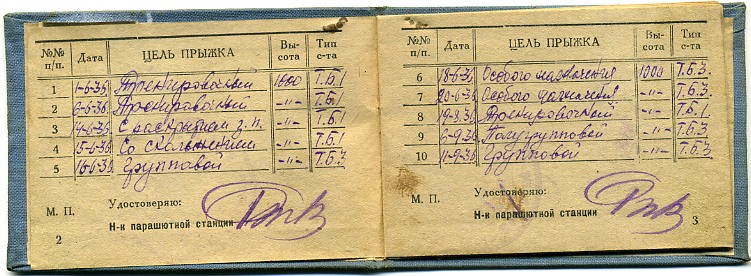 №№ п/п. Дата ЦЕЛЬ ПРЫЖКА Вы-сота Тип с-та
1 1-6-36 Тренировочный 1000 Т.Б.1
2 6-6-36 Тренировочный -"- Т.Б.1
3 14-6-36 С раскрытием з.п. -"- Т.Б.1
4 15-6-36 Со скольжением -"- Т.Б.1
5 16-6-36 Групповой -"- Т.Б.3
М. П. Удостоверяю:
Н-к парашютной станции
2
№№ п/п. Дата ЦЕЛЬ ПРЫЖКА Вы-сота Тип с-та
6 18-6-36 Особого назначения 1000 Т.Б.3.
7 20-6-36 Особого назначения -"- Т.Б.3
8 19-8-36 Тренировочный -"- Т.Б.1
9 6-9-36 Групповой -"- Т.Б.3
10 11-9-36 Групповой -"- Т.Б.3.
М. П. Удостоверяю:
Н-к парашютной станции
3